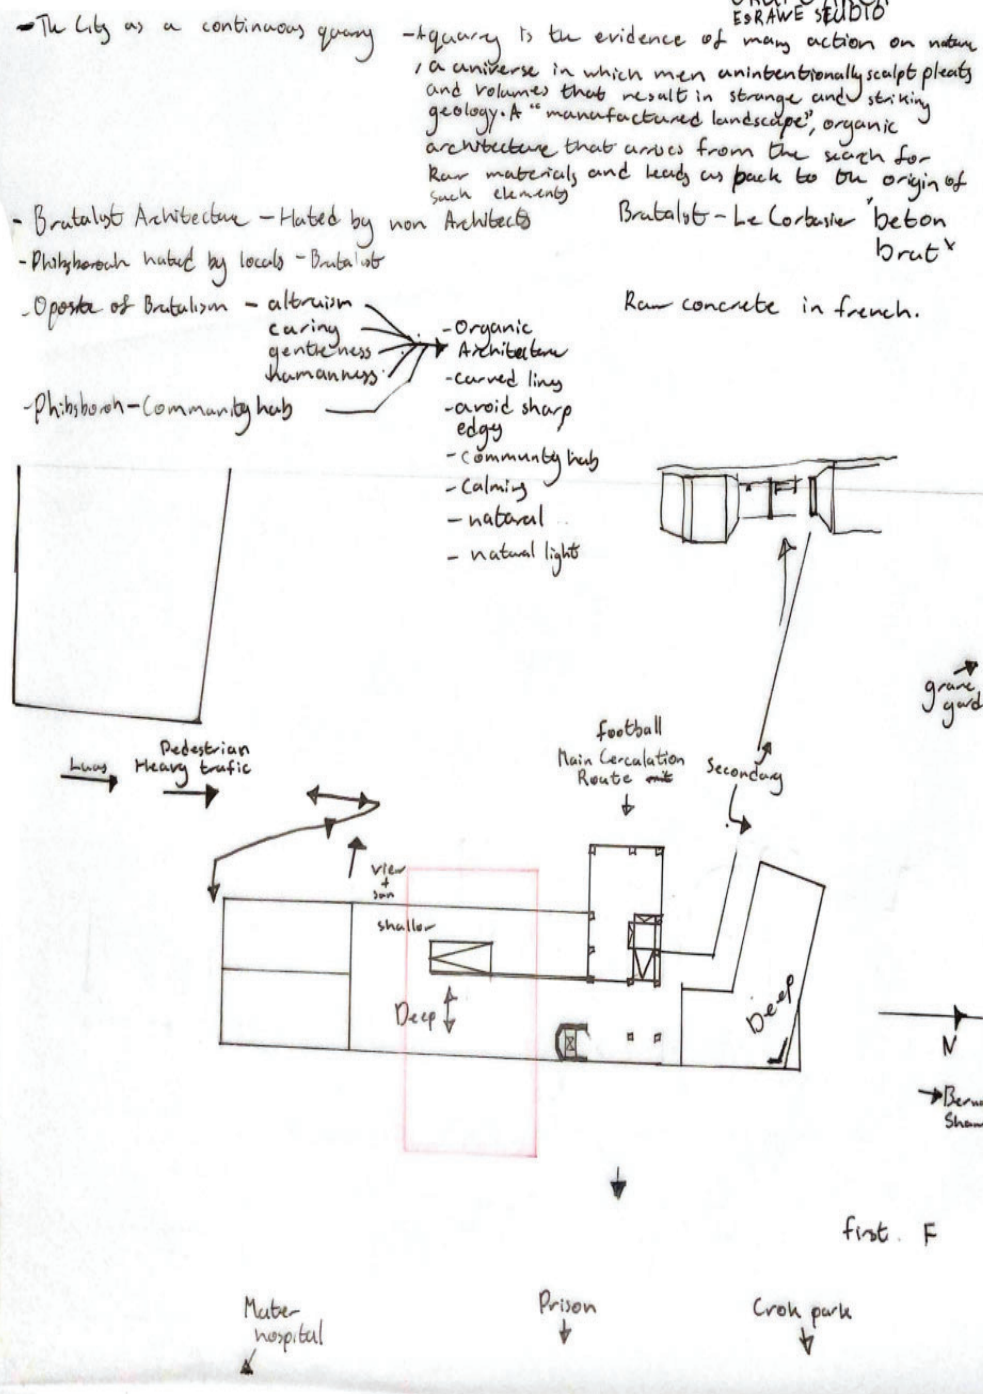 ESRAWE STUDIO
- The City as a continuous quarry
- A quarry is the evidence of mans action on nature
, a universe in which men unintentionally sculpt pleats
and volumes that result in strange and striking
geology. A "manufactured landscape", organic
architecture that arrives from the search for
Raw materials and leads us back to the origin of
such elements
- Brutalist Architecture - Hated by non Architects
Brutalist - Le Corbusier 'beton
brut'
- Phibsboroh hated by locals - Brutalist
Raw concrete in french.
- Oposite of Brutalism - altruism
caring
gentleness
humanness
- Phibsboroh - Community hub
- Organic
Architecture
- curved lines
- avoid sharp
edgy
- community hub
- calming
- natural
- natural light
grave
yard
Luas
Pedestrian
Heavy trafic
football
Main Cerculation
Route
Secondary
view
+
sun
shallor
Deep
Deep
N
Sham
first. F
Mater
hospital
Prison
Crok park